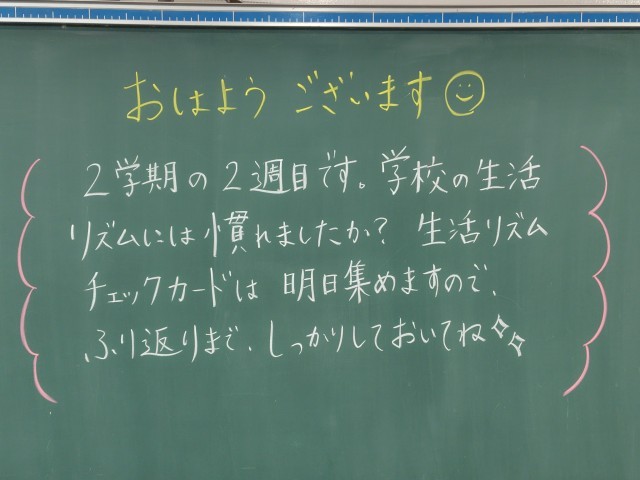 おはよう ございます
2学期の2週目です。学校の生活
リズムには慣れましたか? 生活リズム
チェックカードは 明日集めますので、
ふり返りまで、しっかりしておいてね